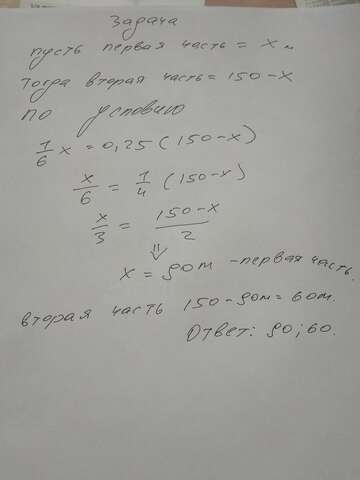 Задача
пусть первая часть = x м
Тогда вторая часть = 150 - x
по условию
1/6 x = 0,25 (150 - x)
x/6 = 1/4 (150 - x)
x/3 = (150 - x)/2
⇓
x = 90 м - первая часть.
вторая часть 150 - 90м = 60м.
Ответ: 90; 60.